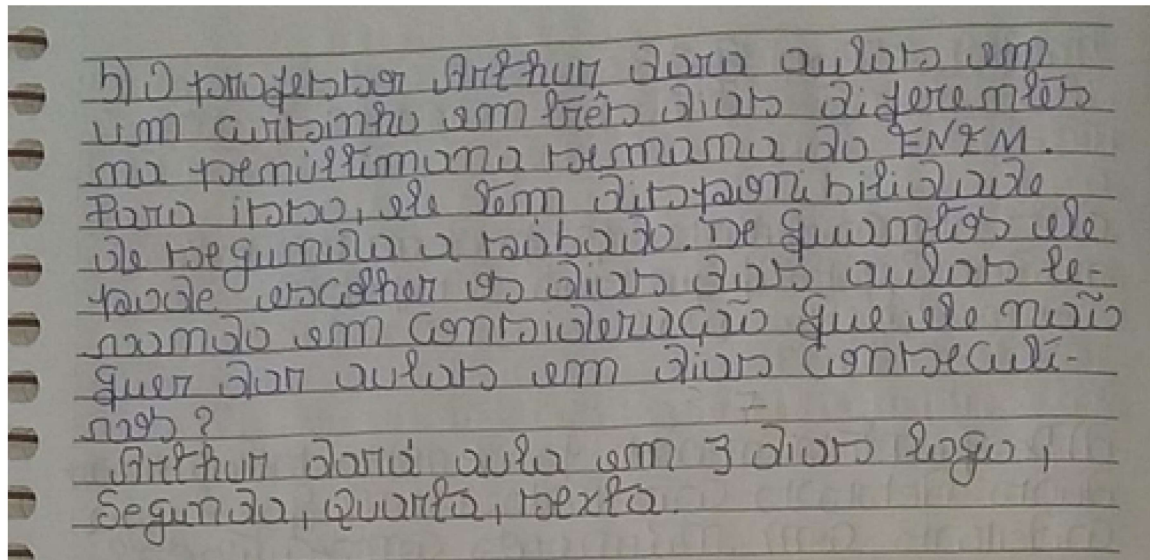 b) O professor Arthur dara aulas em
um cursinho em três dias diferemtes
ma pemúltimana semama do ENEM.
Para isso, ele tem disponibilidade
de segumda a sábado. De quamtos ele
pode escolher os dias das aulas le-
vamdo em comsideração que ele não
quer dar aulas em dias comsecuti-
vos?
Arthur dará aula em 3 dias logo,
Segunda, Quarta, sexta.